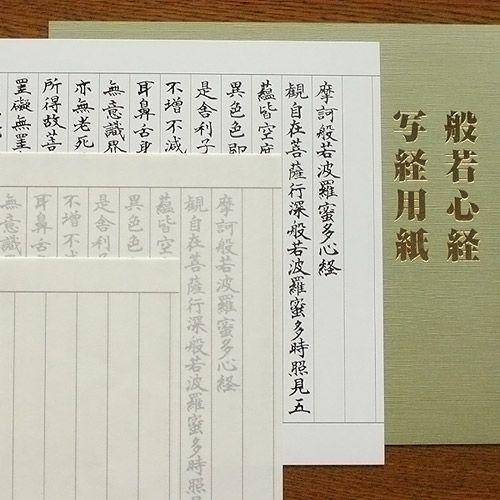 般若心経
写経用紙
摩訶般若波羅蜜多心経
觀自在菩薩行深般若波羅蜜多時照見五
蘊皆空度
異色色即
是舎利子
不増不減
耳鼻舌身
無意識界
亦無老死
所得故菩
罣礙無罣
摩訶般若波羅蜜多心経
觀自在菩薩行深般若波羅蜜多時照
蘊皆空
異色色
是舎利子
不増不減
耳鼻舌
無意識